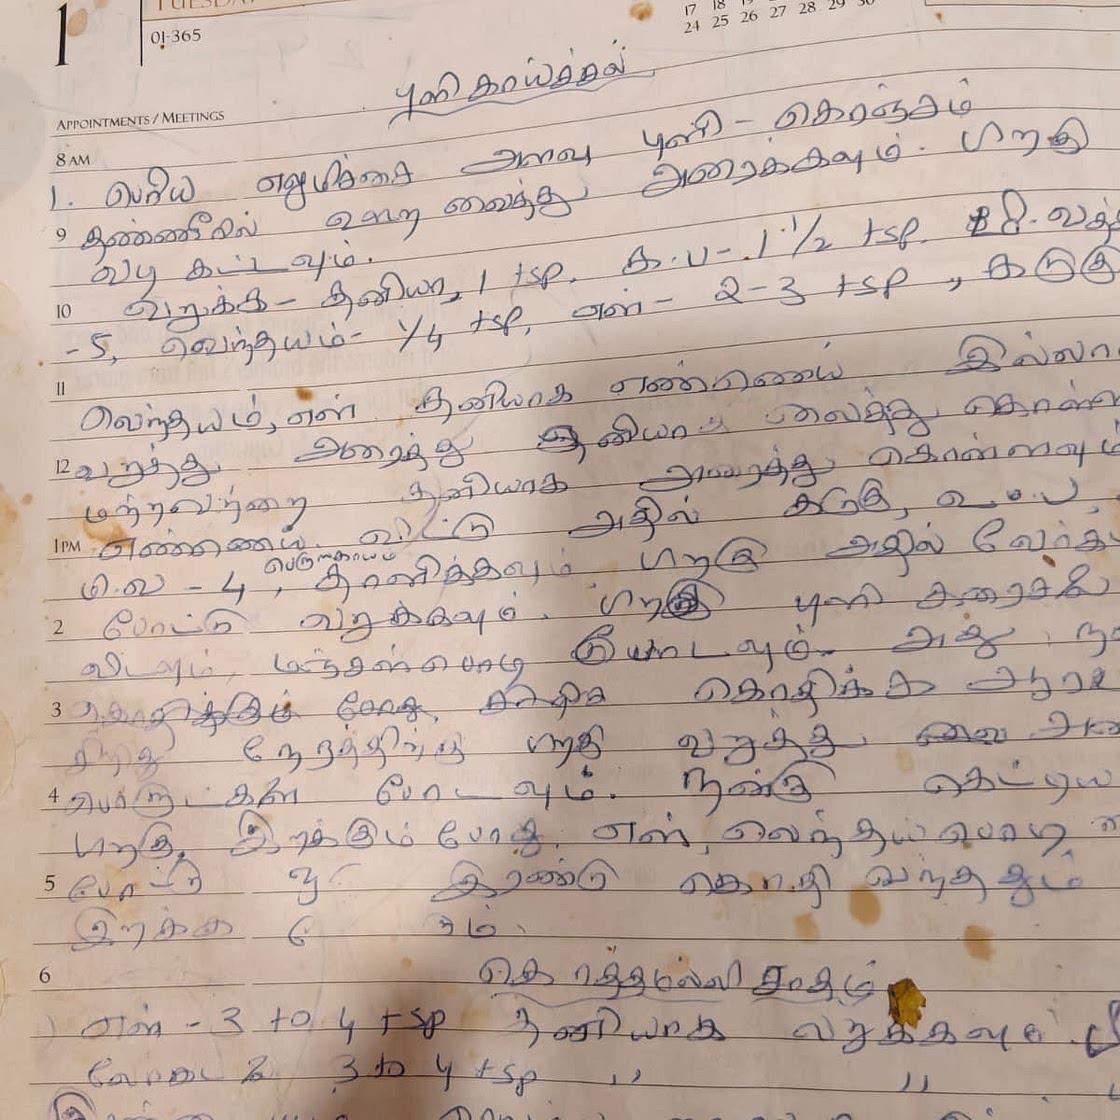 1
TUESDA
01-365
17 18 19
24 25 26 27 28 29 30
புளி காய்ச்சல்
APPOINTMENTS / MEETINGS
8 AM
1. பெரிய எலுமிச்சை அளவு புளி - கொஞ்சம்
9 தண்ணீரில் ஊற வைத்து அரைக்கவும். பிறகு
வடி கட்டவும்.
10 வறுக்க - தனியா, 1 tsp. க.ப - 1 1/2 tsp.
- 5, வெந்தயம் - 1/4 tsp, எள் - 2-3 tsp, கடுகு
11
வெந்தயம், எள் தனியாக எண்ணெய் இல்லா
12 வறுத்து அரைத்து தனியாக வைத்து கொள்ள
மற்றவற்றை தனியாக அரைத்து கொள்ளவும்
பெருங்காயம்
1 PM எண்ணெய் விட்டு அதில் கடுகு, உ.ப
மி.வ - 4, தாளிக்கவும். பிறகு அதில் வேர்க்
2 போட்டு வறுக்கவும். பிறகு புளி கரைசல்
விடவும், மஞ்சள் பொடி போடவும். அது
3 கொதிக்க
நேரத்திற்கு பிறகு வறுத்து
4 பொருட்கள் போடவும். நன்கு கெட்டிய
பிறகு, இறக்கும் போது, எள், வெந்தய பொடி
5 இரண்டு கொதி வந்ததும்
இறக்க
6 கொத்தமல்லி சாதம்
எள் - 3 to 4 tsp தனியாக வறுக்கவும்.
3 to 4 tsp ,, ,,